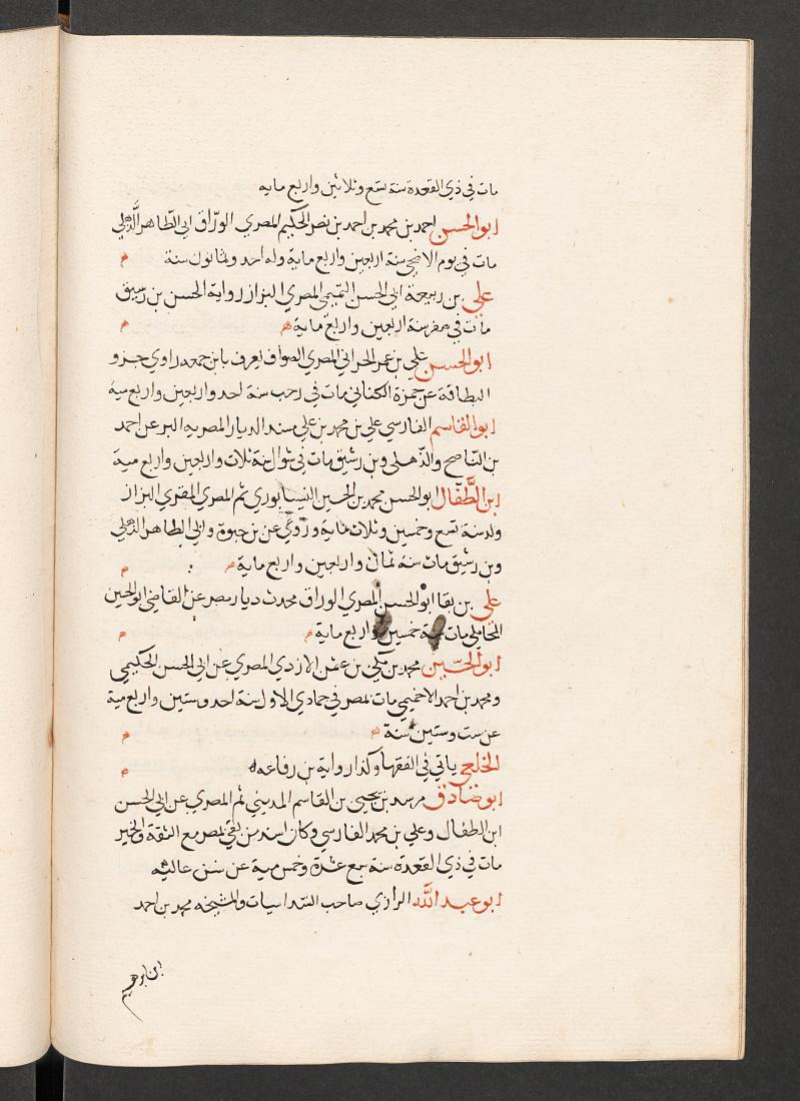 مات في ذي القعدة سنة تسع وثلاثين واربع مايه
ابو الحسن احمد بن محمد بن احمد بن نصر الحكيم المصري الوراق ابي الطاهر الذهلي
مات في يوم الاضحى سنة اربعين واربع ماية وله احد وثمانون سنة م
علي بن ربيعة ابي الحسن التميمي المصري البزاز رواية الحسن بن رشيق
مات في صفر سنة اربعين واربع ماية م م
ابو الحسن علي بن عمر الحراني المصري الصواف يعرف بابن حمصه راوي جزو
البطاقة عن حمزة الكناني مات في رجب سنة احد واربعين واربع ميه
ابو القاسم الفارسي علي بن محمد بن علي مسند الديار المصريه اكثر عن احمد
بن الناصح والذهلي وبن رشيق مات في شوال سنة ثلات واربعين واربع مية
ابن الطفال ابو الحسن محمد بن الحسين النيسابوري ثم المصري المقري البزاز
ولد سنة تسع وخمسين وثلاث ماية وروي عن بن حيوة وابي الطاهر الذهلي
وبن رشيق مات سنة ثمان واربعين واربع ماية م م
علي بن بقا ابو الحسن المصري الوراق محدث ديار مصر عن القاضي ابو الحسين
المحاملي مات سنة خمسين واربع ماية م م
ابو الحسين محمد بن مكي بن عثمن الازدي المصري عن ابي الحسن الحكيمي
ومحمد بن احمد الاخميمي مات بمصر في جمادي الاول سنة احد وستين واربع مية
عن ست وستين سنة م م
الخلعي ياتي في الفقها وكذا رواية بن رفاعه م
ابو صادق مرشد بن يحيى بن القاسم المديني ثم المصري عن ابي الحسن
ابن الطفال وعلي بن محمد الفارسي وكان اسند من بقي بمصر مع الثقة والخير
مات في ذي القعدة سنة سبع عشرة وخمس مية عن سن عاليه
ابو عبد الله الرازي صاحب السداسيات والمشيخه محمد بن احمد
ابن ابرهيم